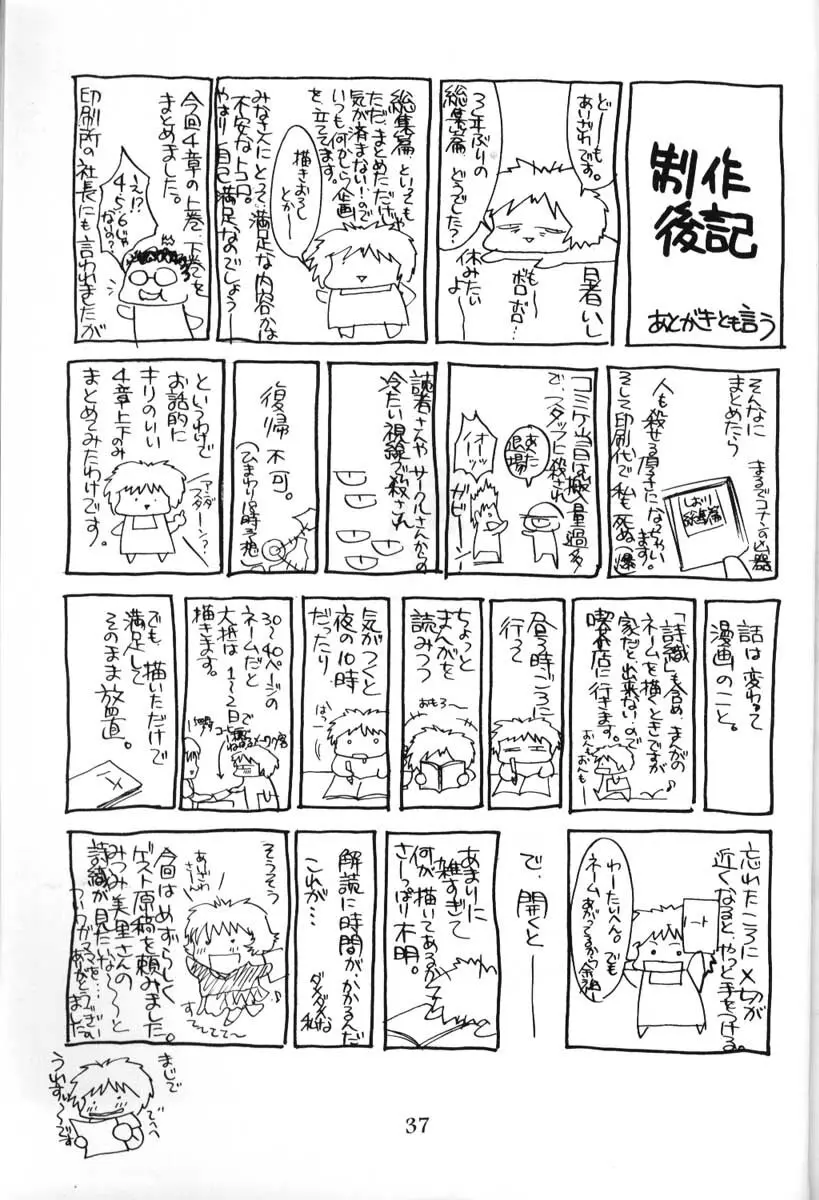 制作
後記
あとがきとも言う
どーも
あいざわです。
3年ぶりの
総集篇
どうでした?
暑いし
もー
ボロ
ボロ…
休みたい
よー
総集篇といっても
ただまとめただけじゃ
気が済まない…ので
いつも何かしら企画
を立ててます。
描きおろし
とかー
みなさんにとって満足な内容かは
不安なトコロ。
やはり自己満足なのでしょうー
今回4章の上巻、下巻を
まとめました。
え!?
4・5・6じゃ
ないの?
印刷所の社長にも言われましたが
そんなに
まとめたら
まるでコナンの凶器
しおり
総集篇
人も殺せる厚子になっちゃい
ます。
そして印刷代で私も死ぬ(爆)
コミケ当日は搬入量過多
で、スタッフに殺され
あんた
退場
オイッ
ガビ
読者さんやサークルさんからの
冷たい視線で殺され
復帰
不可。
というわけで
お話的に
キリのいい
4章上下のみ
まとめてみたわけです。
アンダ
スターン?
話は変わって
漫画のこと。
「詩織」も含め、まんがの
ネームを描くときですが
家だと出来ないので
喫茶店に行きます。
昼3時ごろに
行って
ちょっと
まんがを
読みつつ
おもろ〜
気がつくと
夜の10時
だったり
はっ
30〜40ページの
ネームだと
大抵は1〜2日で
描きます。
でも、描いただけで
満足して
そのまま放置。
忘れたころに〆切が
近くなると、やっと手をつける。
ノート
わーたいへん。でも
ネームあがってるから
で、開くと──
あまりに
雑すぎて
何が描いてあるか
さーっぱり不明。
解読に時間がかかるんだ
これが…
ダメダメな
私
そうそう
今回はめずらしく
ゲスト原稿を頼みました。
みつみ美里さんの
詩織が見たいな〜〜と
すてててて〜
まじで
うれすぃ〜〜です
でへへ
37